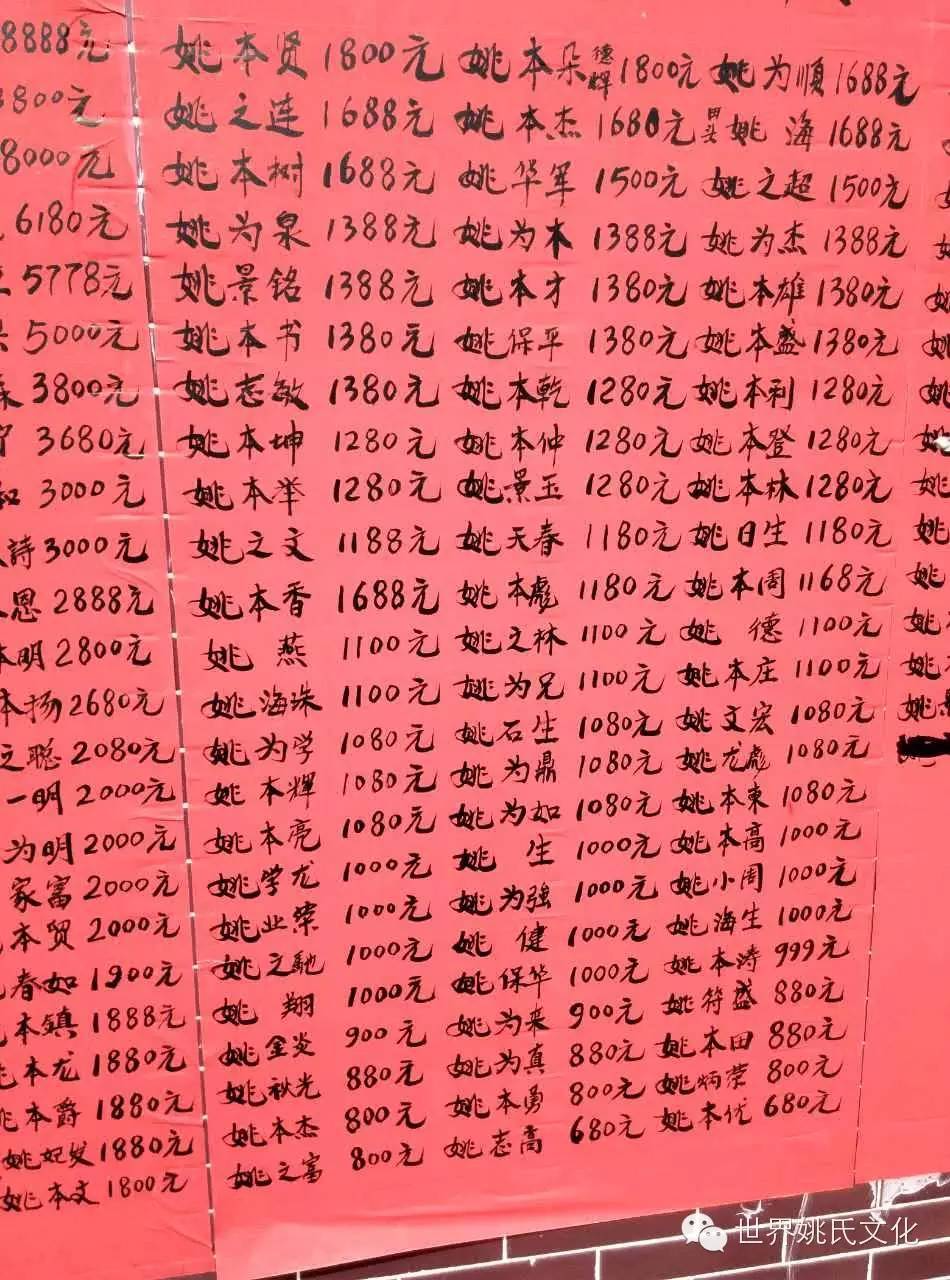 8888元
3800元
8000元
6180元
5778元
5000元
3800元
3680元
和 3000元
詩 3000元
恩 2888元
本明 2800元
本扬 2680元
之聪 2080元
一明 2000元
为明 2000元
家富 2000元
本贸 2000元
春如 1900元
本鎮 1888元
姚本龙 1880元
姚本爵 1880元
姚妃发 1880元
姚本文 1800元
姚本贤 1800元 姚本朵 德辉 1800元 姚为順 1688元
姚之连 1688元 姚本杰 1680元 姚海 1688元
姚本树 1688元 姚华军 1500元 姚之超 1500元
姚为泉 1388元 姚为本 1388元 姚为杰 1388元
姚景铭 1388元 姚本才 1380元 姚本雄 1380元
姚本书 1380元 姚保平 1380元 姚本盛 1380元
姚志敏 1380元 姚本乾 1280元 姚本利 1280元
姚本坤 1280元 姚本仲 1280元 姚本登 1280元
姚本举 1280元 姚景玉 1280元 姚本林 1280元
姚之文 1188元 姚天春 1180元 姚日生 1180元
姚本香 1688元 姚本彪 1180元 姚本周 1168元
姚燕 1100元 姚之林 1100元 姚德 1100元
姚海珠 1100元 姚为兄 1100元 姚本庄 1100元
姚为学 1080元 姚石生 1080元 姚文宏 1080元
姚本輝 1080元 姚为鼎 1080元 姚龙彪 1080元
姚本亮 1080元 姚为如 1080元 姚本東 1080元
姚学龙 1000元 姚生 1000元 姚本高 1000元
姚业荣 1000元 姚为强 1000元 姚小周 1000元
姚之馳 1000元 姚健 1000元 姚海生 1000元
姚翔 1000元 姚保华 1000元 姚本涛 999元
姚金炎 900元 姚为来 900元 姚符盛 880元
姚秋光 880元 姚为真 880元 姚本田 880元
姚本杰 800元 姚本勇 800元 姚炳荣 800元
姚之富 800元 姚志高 680元 姚本优 680元
世界姚氏文化